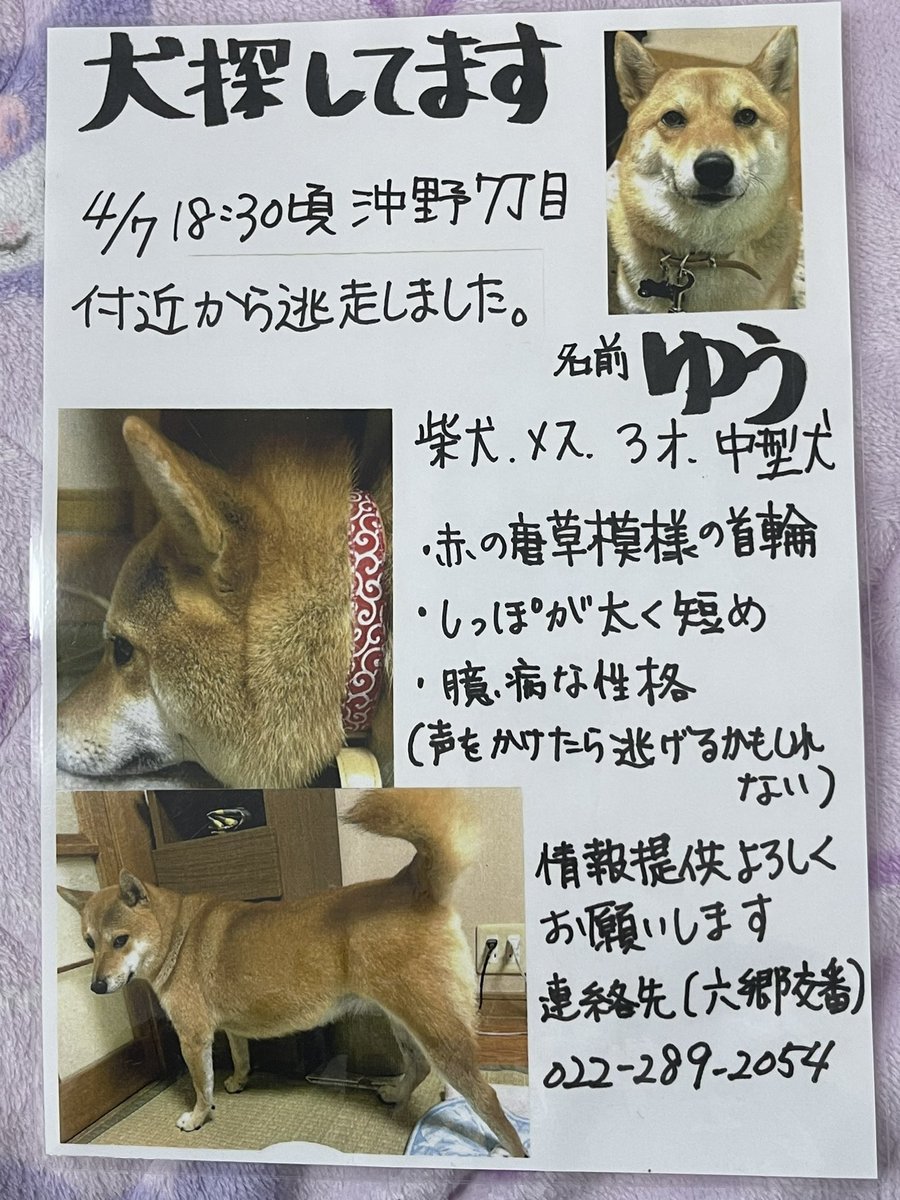 犬探してます
4/7 18:30頃 沖野7丁目
付近から逃走しました。
名前 ゆう
柴犬.メス.3才.中型犬
・赤の唐草模様の首輪
・しっぽが太く短め
・臆病な性格
(声をかけたら逃げるかもしれ
ない)
情報提供よろしく
お願いします
連絡先(六郷交番)
022-289-2054